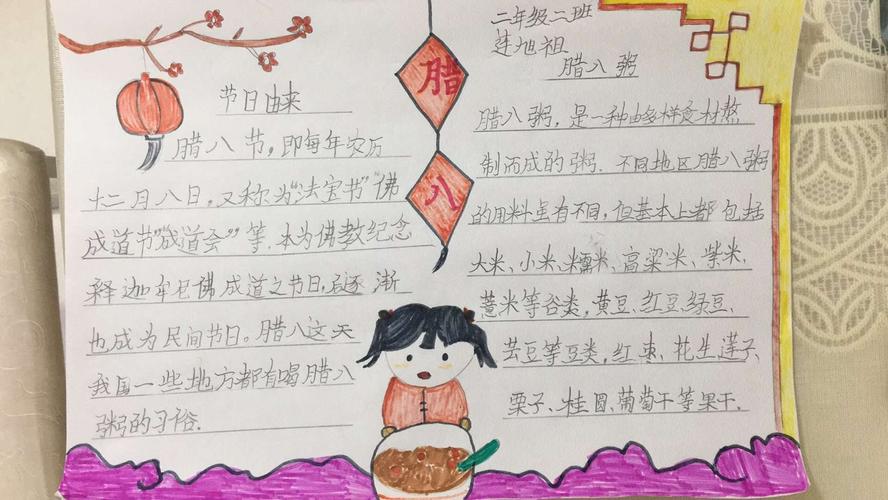 节日由来
腊八节，即每年农历
十二月八日，又称为“法宝书”“佛
成道节”“成道会”等。本为佛教纪念
释迦牟尼佛成道之节日，后逐渐
也成为民间节日。腊八这天
我国一些地方都有喝腊八
粥的习俗.
腊
八
二年级二班
莲旭祖
腊八粥
腊八粥，是一种由多样食材熬
制而成的粥.不同地区腊八粥
的用料虽有不同，但基本上都包括
大米、小米、糯米、高粱米、紫米、
薏米等谷类，黄豆、红豆、绿豆、
芸豆等豆类，红枣、花生、莲子、
栗子、桂圆、葡萄干等果干.